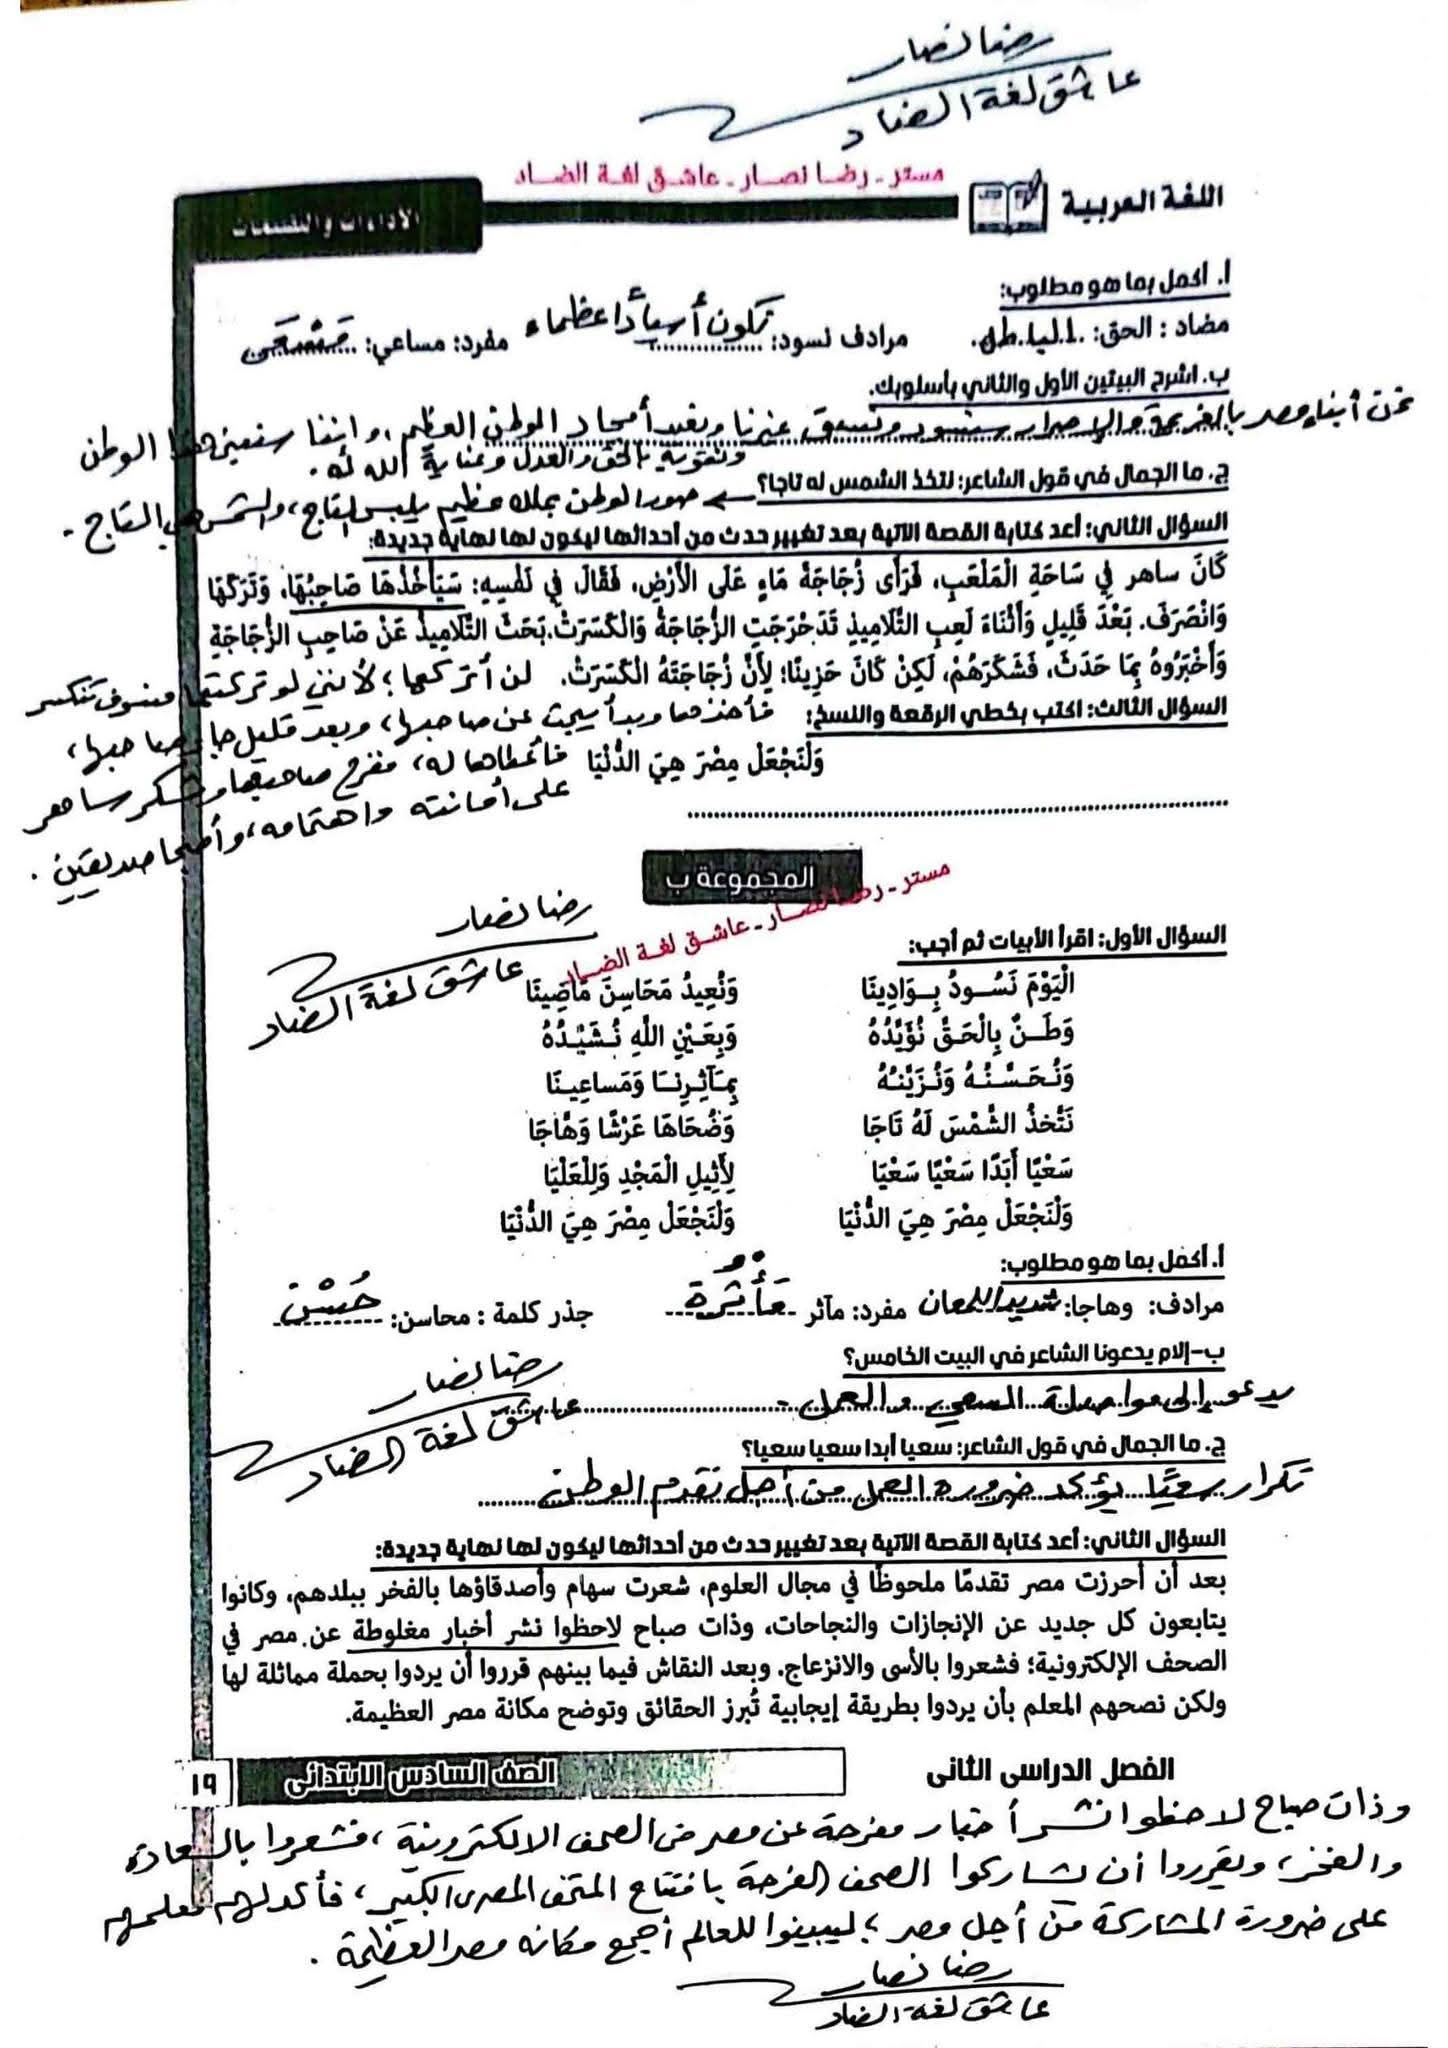 رضا نصار
عاشق لغة الضاد
مستر - رضا نصار - عاشق لغة الضاد
اللغة العربية
الأداءات والتقييمات
أ. أكمل بما هو مطلوب:
مضاد : الحق: الباطل. مرادف نسود: نكون أسيادًا عظماء مفرد: مساعي: مَسْعَى
ب. اشرح البيتين الأول والثاني بأسلوبك.
نحن أبناء مصر بالعزيمة والإصرار سنسود ونسبق غيرنا ونعيد أمجاد الوطن العظيم، وإننا سنبني هذا الوطن
ونقويه بالحق والعدل وعناية الله له.
ج. ما الجمال في قول الشاعر: نتخذ الشمس له تاجا؟ صور الوطن بملك عظيم يلبس التاج، والشمس هي التاج.
السؤال الثاني: أعد كتابة القصة الآتية بعد تغيير حدث من أحداثها ليكون لها نهاية جديدة:
كَانَ ساهر فِي سَاحَةِ الْمَلْعَبِ، فَرَأَى زُجَاجَةَ مَاءٍ عَلَى الْأَرْضِ، فَقَالَ فِي نَفْسِهِ: سَيَأْخُذُهَا صَاحِبُهَا، وَتَرَكَهَا
وَانْصَرَفَ. بَعْدَ قَلِيلٍ وَأَثْنَاءَ لَعِبِ التَّلَامِيذِ تَدَحْرَجَتِ الزُّجَاجَةُ وَانْكَسَرَتْ. بَحَثَ التَّلَامِيذُ عَنْ صَاحِبِ الزُّجَاجَةِ
وَأَخْبَرُوهُ بِمَا حَدَثَ، فَشَكَرَهُمْ، لَكِنْ كَانَ حَزِينًا؛ لِأَنَّ زُجَاجَتَهُ انْكَسَرَتْ. لن أتركها؛ لأنني لو تركتها فسوف تنكسر
السؤال الثالث: اكتب بخطي الرقعة والنسخ: فأخذها وبدأ يبحث عن صاحبها، وبعد قليل جاء صاحبها،
وَلْنَجْعَلْ مِصْرَ هِيَ الدُّنْيَا فأعطاها له، ففرح صاحبها وشكر ساهر
على أمانته واهتمامه، وأصبحا صديقين.
المجموعة ب
مستر - رضا نصار - عاشق لغة الضاد
رضا نصار
عاشق لغة الضاد
السؤال الأول: اقرأ الأبيات ثم أجب:
الْيَوْمَ نَسُودُ بِوَادِينَا وَنُعِيدُ مَحَاسِنَ مَاضِينَا
وَطَنٌ بِالْحَقِّ نُؤَيِّدُهُ وَبِعَيْنِ اللَّهِ نُشَيِّدُهُ
وَنُحَسِّنُهُ وَنُزَيِّنُهُ بِمَآثِرِنَا وَمَسَاعِينَا
نَتَّخِذُ الشَّمْسَ لَهُ تَاجَا وَضُحَاهَا عَرْشًا وَهَّاجَا
سَعْيًا أَبَدًا سَعْيًا سَعْيَا لِأَثِيلِ الْمَجْدِ وَلِلْعَلْيَا
وَلْنَجْعَلْ مِصْرَ هِيَ الدُّنْيَا وَلْنَجْعَلْ مِصْرَ هِيَ الدُّنْيَا
أ. أكمل بما هو مطلوب:
مرادف: وهاجا: شديد اللمعان مفرد: مآثر مَأْثُرَة جذر كلمة : محاسن: حُسْن
ب-إلام يدعونا الشاعر في البيت الخامس؟
يدعو إلى مواصلة السعي والعمل.
رضا نصار
عاشق لغة الضاد
ج. ما الجمال في قول الشاعر: سعيا أبدا سعيا سعيا؟
تكرار سعيًا يؤكد ضرورة العمل من أجل تقدم الوطن
السؤال الثاني: أعد كتابة القصة الآتية بعد تغيير حدث من أحداثها ليكون لها نهاية جديدة:
بعد أن أحرزت مصر تقدمًا ملحوظًا في مجال العلوم، شعرت سهام وأصدقاؤها بالفخر ببلدهم، وكانوا
يتابعون كل جديد عن الإنجازات والنجاحات، وذات صباح لاحظوا نشر أخبار مغلوطة عن مصر في
الصحف الإلكترونية؛ فشعروا بالأسى والانزعاج. وبعد النقاش فيما بينهم قرروا أن يردوا بحملة مماثلة لها
ولكن نصحهم المعلم بأن يردوا بطريقة إيجابية تُبرز الحقائق وتوضح مكانة مصر العظيمة.
الفصل الدراسي الثاني
الصف السادس الابتدائي
١٩
وذات صباح لاحظوا نشر أخبار مفرحة عن مصر في الصحف الالكترونية، فشعروا بالسعادة
والفخر، وقرروا أن يشاركوا الصحف الفرحة بافتتاح المتحف المصري الكبير، فأكد لهم معلمهم
على ضرورة المشاركة من أجل مصر؛ ليبينوا للعالم أجمع مكانه مصر العظيمة.
رضا نصار
عاشق لغة الضاد